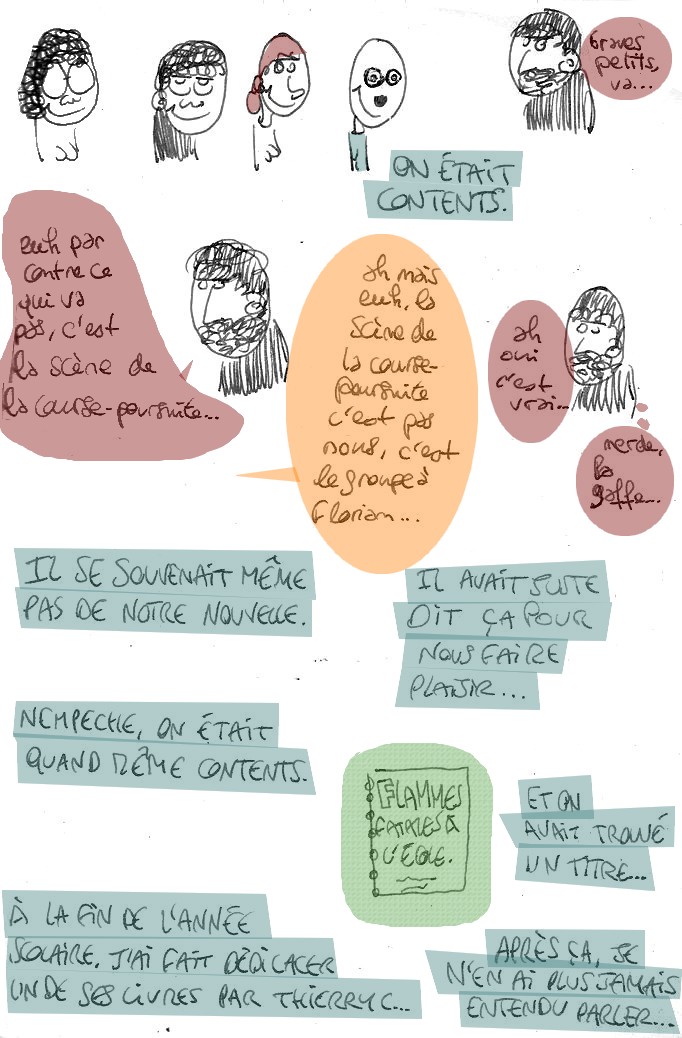 braves
petits,
va...
ON ÉTAIT
CONTENTS.
euh par
contre ce
qui va
pas, c'est
la scène de
la course-poursuite...
ah mais
euh, la
scène de
la course-
poursuite
c'est pas
nous, c'est
le groupe à
Florian...
ah
oui
c'est
vrai...
merde,
la
gaffe...
IL SE SOUVENAIT MÊME
PAS DE NOTRE NOUVELLE.
IL AVAIT JUSTE
DIT ÇA POUR
NOUS FAIRE
PLAISIR...
NEMPECHE, ON ÉTAIT
QUAND MÊME CONTENTS.
FLAMMES
FATALES À
L'ÉCOLE.
ET ON
AVAIT TROUVÉ
UN TITRE...
À LA FIN DE L'ANNÉE
SCOLAIRE, J'AI FAIT DÉDICACER
UN DE SES LIVRES PAR THIERRY C...
APRÈS ÇA, JE
N'EN AI PLUS JAMAIS
ENTENDU PARLER...